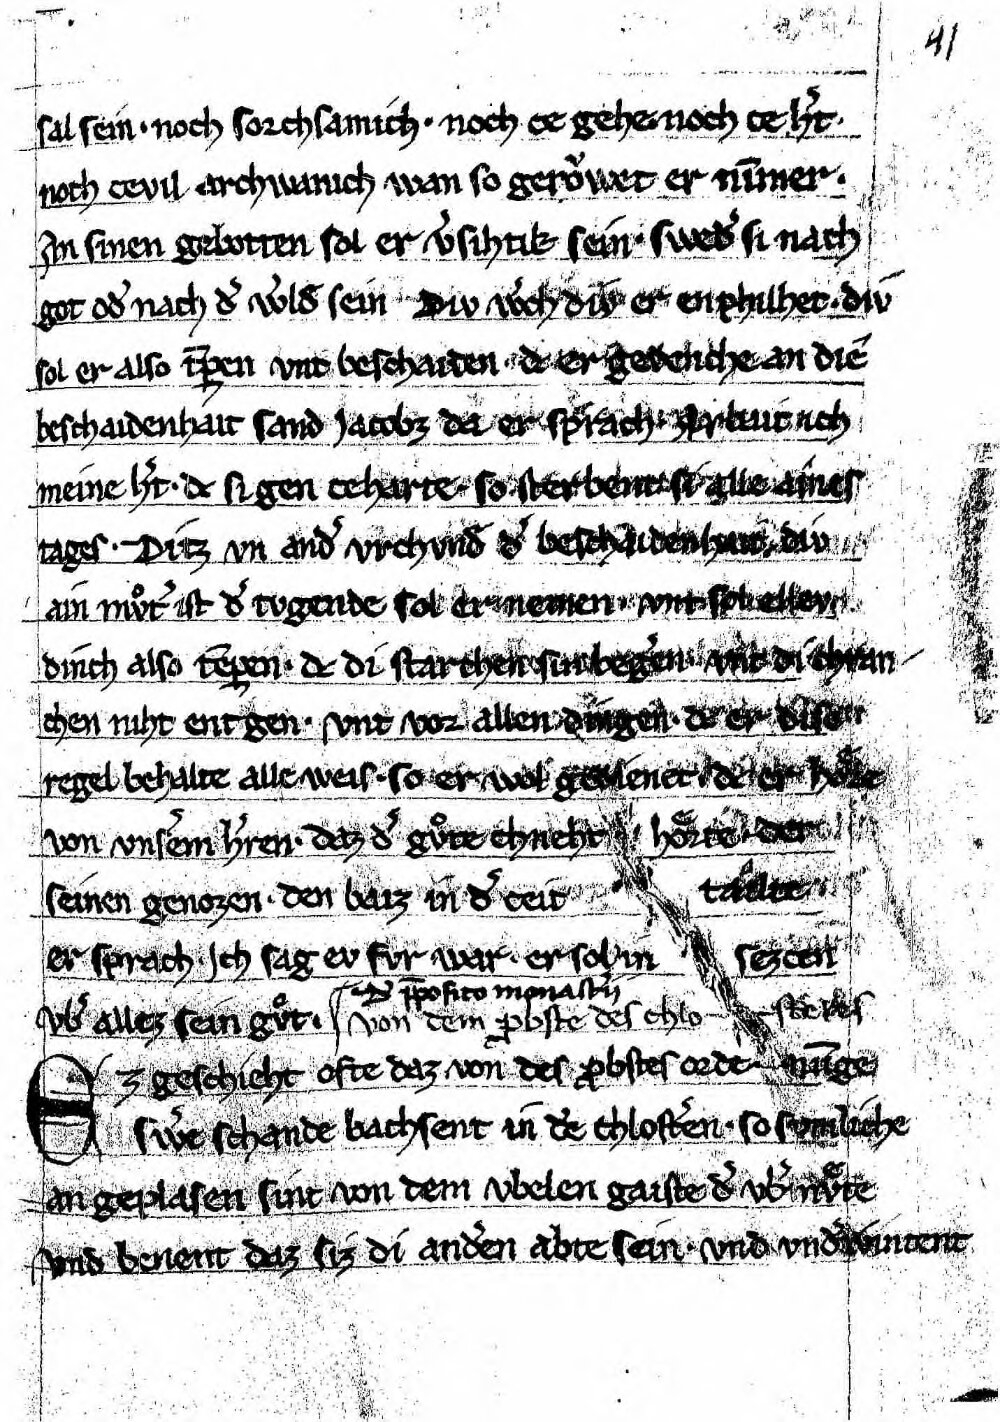 41
sal sein · noch sorchsamich · noch ce gehe · noch ce hˀt ·
noch cevil archwanich wan so gerowet er nūmer ·
In sinen gebotten sol er vˀsihtik sein · swedˀ si nach
got odˀ nach dˀ wˀld sein Div wˀch div er enphilhet · div
sol er also tp̄en vnt beschaiden · dc er gedenche an die
beschaidenhait sand Jacobz da er sprach · Arbait ich
meine hˀt · dc si gen ceharte · so sterbent si alle aines
tages · Ditz vn andˀ vrchvnd dˀ beschaidenhait, div
ain mvͦtˀ ist dˀ tvgende sol er nemen · vnt sol ellev
dinch also tēpen · dc di starchen sin begˀen · vnt di chran
chen niht entgen · vnt vor allen dingen · dc er dise
regel behalte alle weis · so er wol gedienet · dc er hoͤre
von vnsˀem hˀren · daz dˀ gvͦte chneht hoͤrte · der
seinen genozen · den baiz in dˀ ceit tailte
er sprach · Ich sag ev fvr war · er sol in sezcen
vbˀ allez sein gvͦt ·
Dˀ p̄posito monastˀii
von dem p̱bste des chlo sterˀs
Ez geschieht ofte daz von des p̱bstes orde nūge
swˀe schande bachsent in dˀe chlostˀen · so svmliche
an geplasen sint von dem vbelen gaiste dˀ vbˀmvͤte
vnd benent daz siz di andˀen abte sein · vnd vndˀwintent